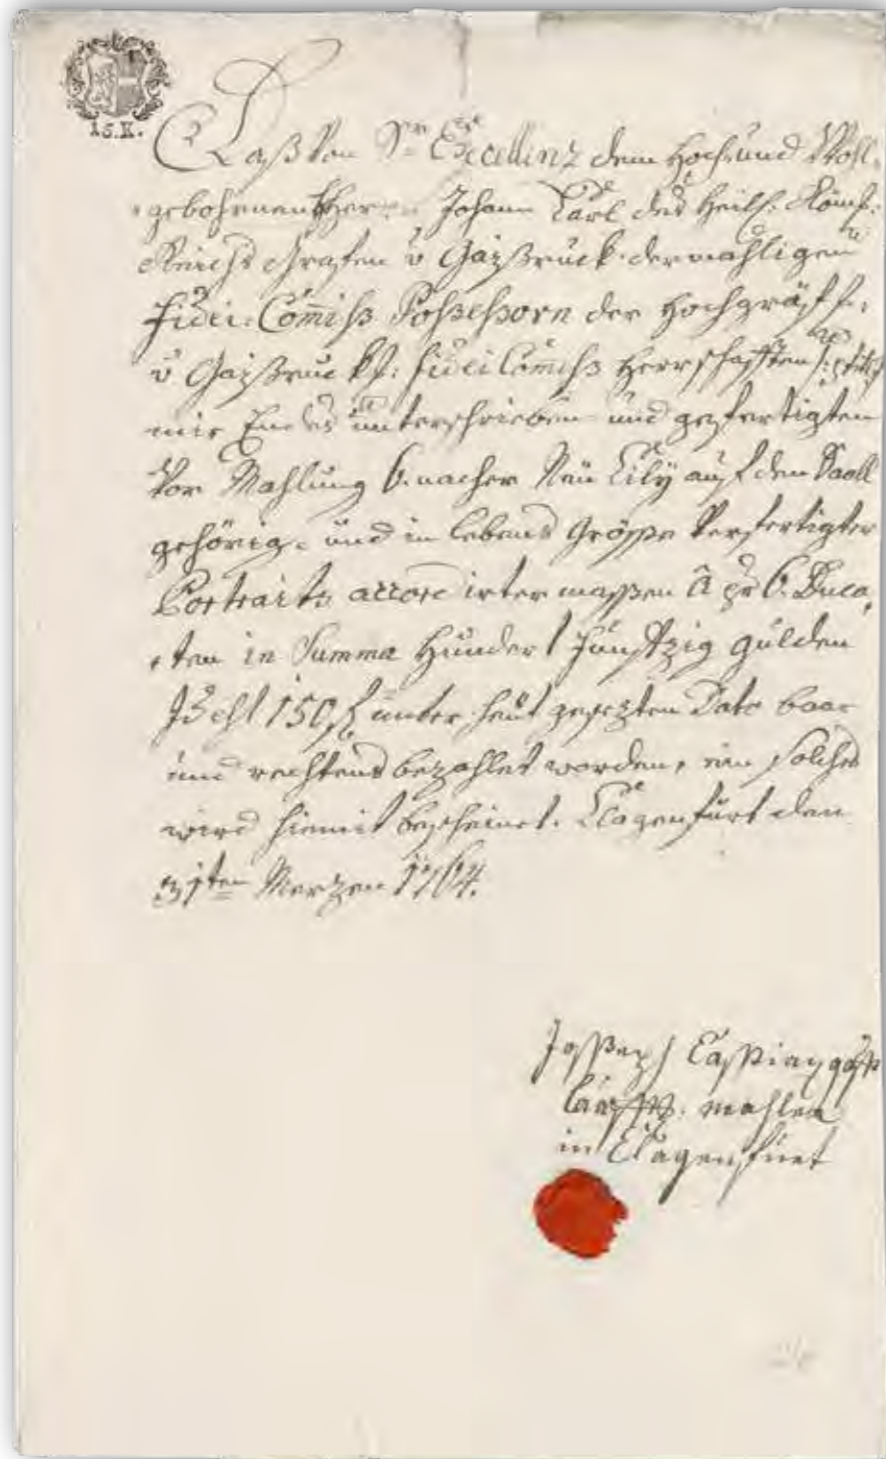 15.K.
Daß von Sr Excellenz dem Hoch und Wohl-
gebohrnen Herrn Johann Carl des Heil: Röm:
Reichs Grafen v Gaißruck dermahligen
Fidei: Com̄iss Poßeßorn der Hochgräff:
v Gaißruck: fidei Com̄iss Herrschafften
mir Endes unterschrieben und gefertigten
vor Mahlung 6. nacher Neu Cilÿ auf den Saall
gehörig. und in lebens Grösse verfertigter
Portraits accordirter massen â pr 6. Duca,
,ten in Summa Hundert Fünfzig gulden
150 f unter heut gesezten Dato baar
und rechtens bezahlet worden, ein solches
wird hiemit bescheinet. Clagenfurt den
31ten Merzen 1764.
Josseph
mahler
in Clagenfurt